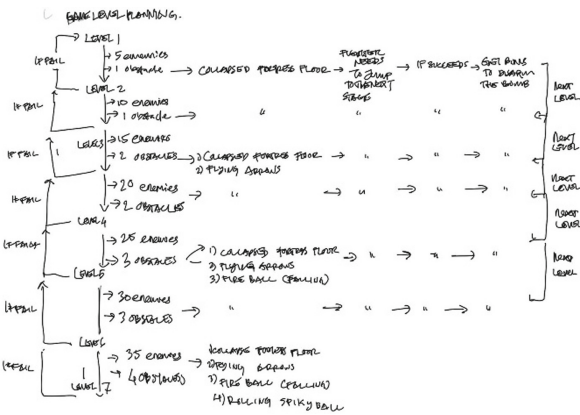 GAME LEVEL PLANNING.
LEVEL 1
IF FAIL
5 enemies
1 obstacle → COLLAPSED FORTRESS FLOOR → NEEDS TO JUMP TO THE NEXT STAGE → IF SUCCEEDS → TO THE BOMB
LEVEL 2
NEXT LEVEL
IF FAIL
10 enemies
1 obstacle → " → " → " → "
LEVEL 3
NEXT LEVEL
IF FAIL
15 enemies
2 OBSTACLES → 1) COLLAPSED FORTRESS FLOOR → " → " → "
2) FLYING ARROWS
NEXT LEVEL
IF FAIL
20 enemies
2 OBSTACLES → " → " → " → "
LEVEL 4
NEXT LEVEL
IF FAIL
25 enemies
3 OBSTACLES
1) COLLAPSED FORTRESS FLOOR → " → " → "
2) FLYING ARROWS
3) FIRE BALL (FALLING)
LEVEL 5
NEXT LEVEL
IF FAIL
30 enemies
3 OBSTACLES → " → " → " → "
LEVEL 6
IF FAIL
35 enemies
4 OBSTACLES
1) COLLAPSE FORTRESS FLOOR
2) FLYING ARROWS
3) FIRE BALL (FALLING)
4) ROLLING SPIKY BALL
LEVEL 7